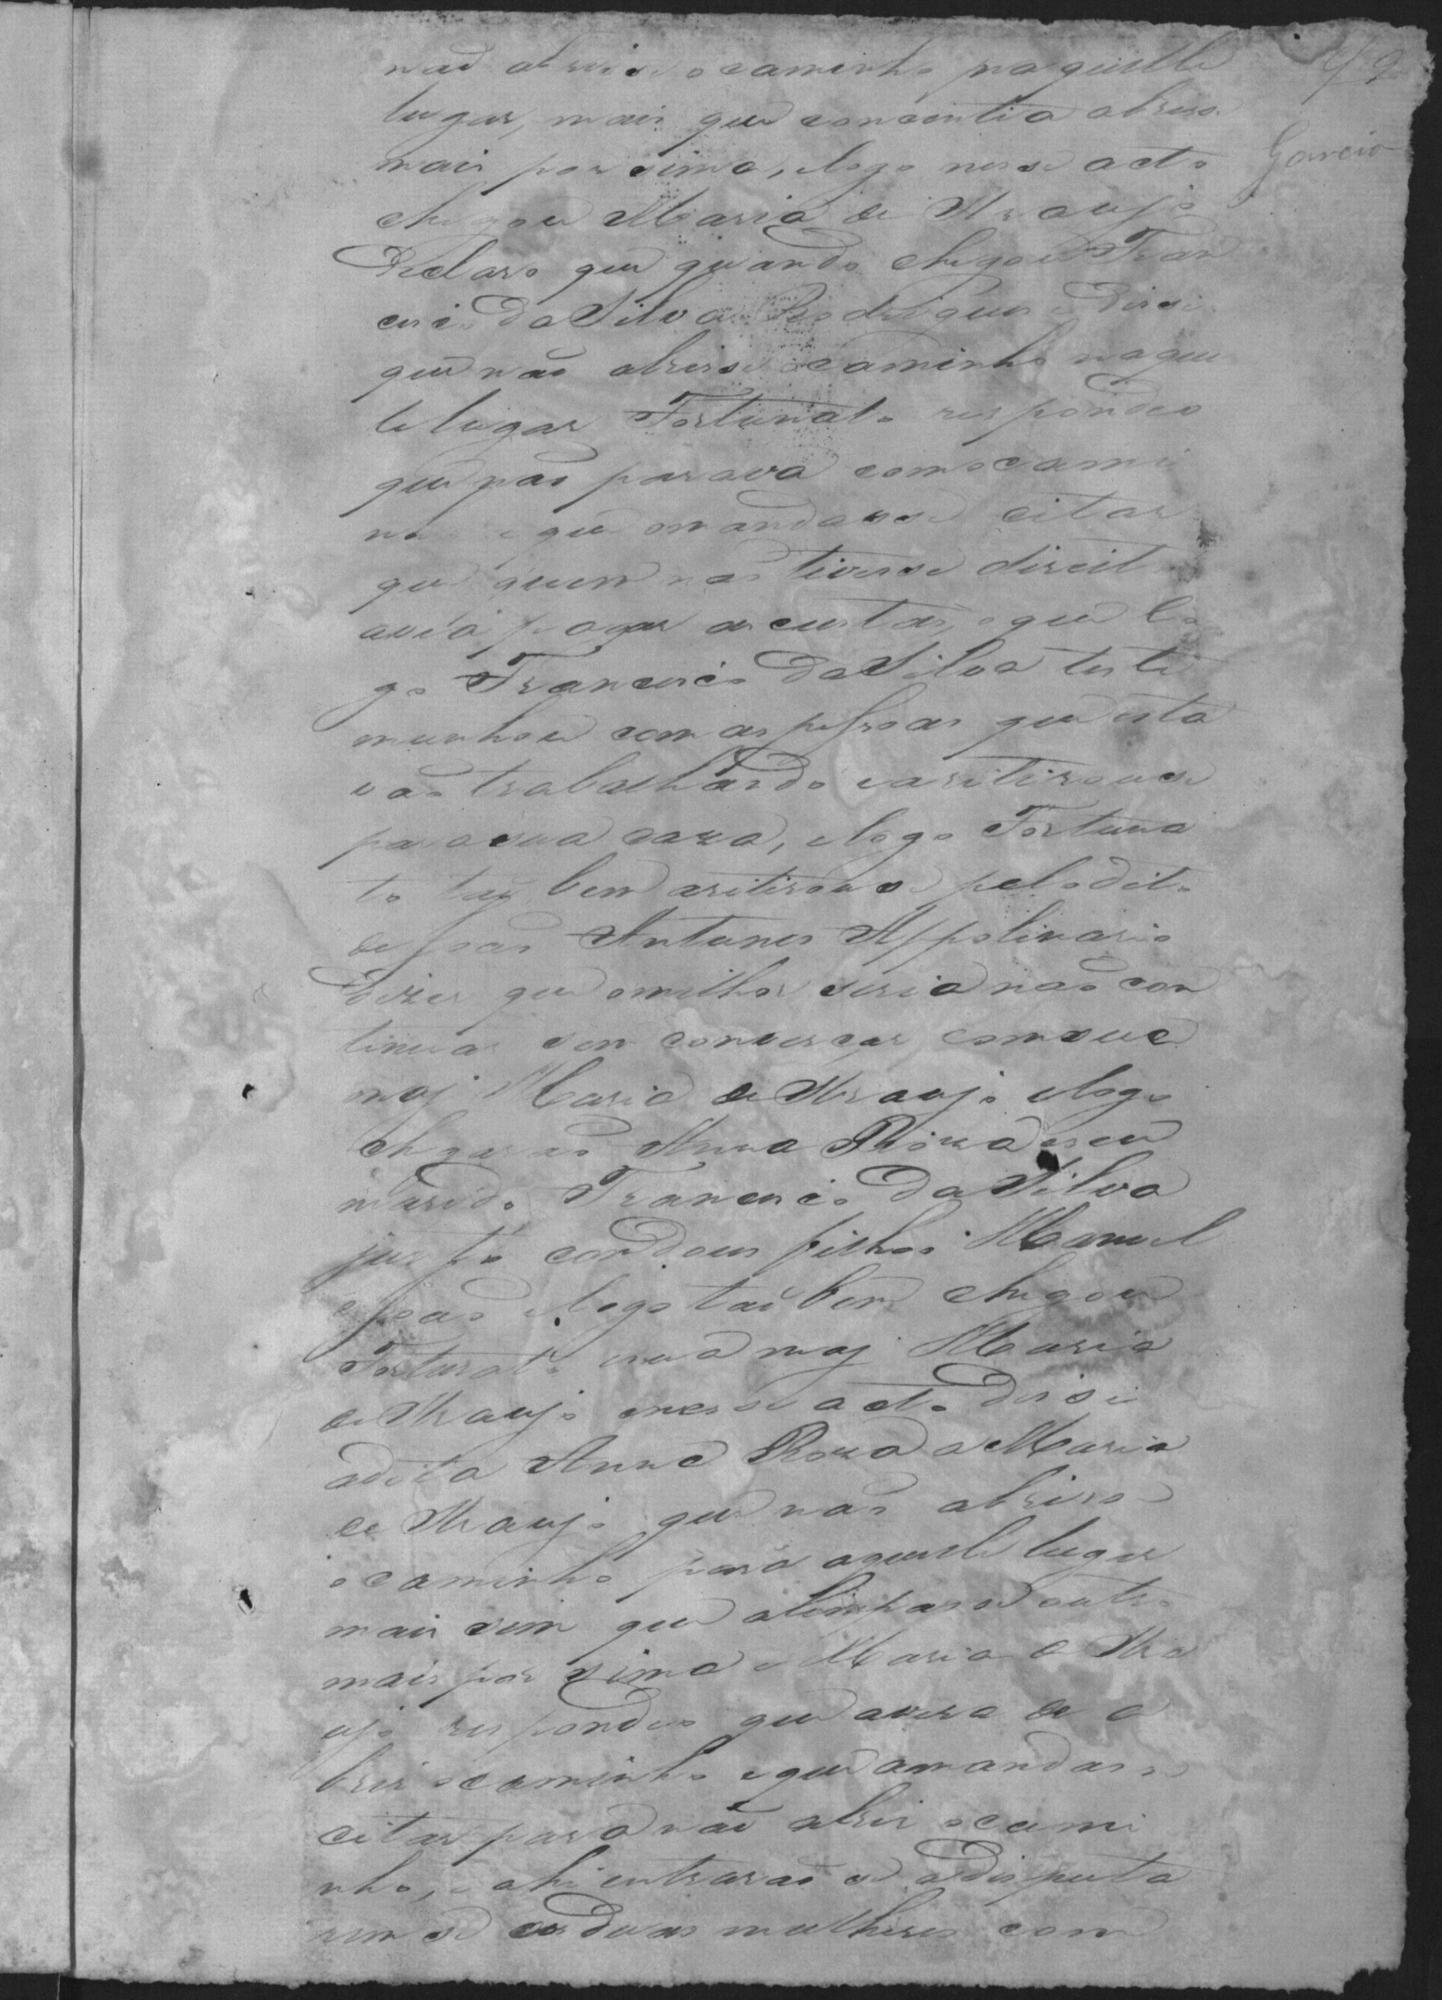 não abrise o caminho naquelle
lugar, mais que concentia abriso
mais por sima, e logo nese acto
chegou Maria de Araujo
Declaro que quando chegou Fran
cisco da Silva Rodrigues e dise
que não abrise o caminho naque
le lugar Fortunato respondeo
que não parava com o cami
nho e que mandasse citar
que quem não tivesse direito
avia pagar as custas, o que lo
go Francisco da Silva teste
munhou com as pessoas que esta
vão trabalhando e aritirouse
para sua caza, e logo Fortuna
to taõ bem aritirouse pelo dito
de João Antunes Appolinario
dizer que o milhor seria não con
tinuar sem conversar com sua
maj Maria de Araujo e logo
chegarão Anna Roza e seu
marido Francisco da Silva
junto com dous filhos Manuel
e João e logo taõ bem chegou
Fortunato e sua maj Maria
de Araujo e nesse acto dise
a dita Anna Roza a Maria
de Araujo que não abriso
o caminho para aquele lugar
mais sim que alimpasse outro
mais por sima e Maria de Ara
ujo respondeo que avera de a
brir o caminho e que amandase
citar para não abrir o cami
nho, e ahi entrarão a disputa
rem se as duas mulheres com
49
Garcia